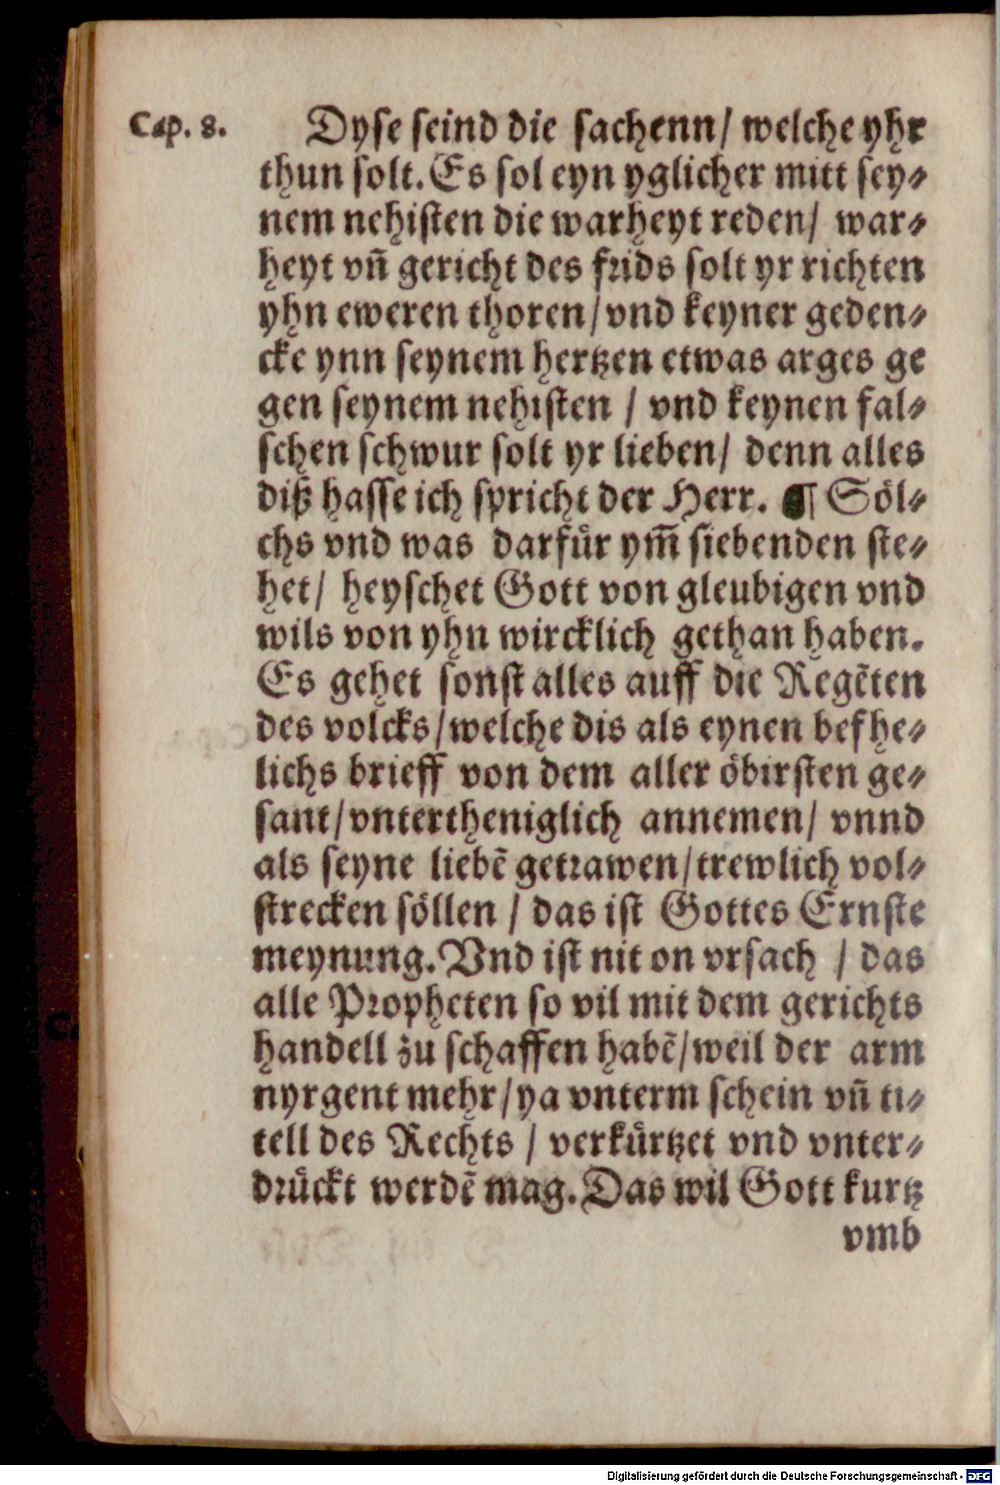 Cap. 8.
Dyse seind die sachenn/ welche yhr
thun solt. Es sol eyn yglicher mitt sey⸗
nem nehisten die warheyt reden/ war⸗
heyt vñ gericht des frids solt yr richten
yhn eweren thoren/vnd keyner geden⸗
cke ynn seynem hertzen etwas arges ge
gen seynem nehisten / vnd keynen fal⸗
schen schwur solt yr lieben/ denn alles
diß hasse ich spricht der Herr. ¶ Söl⸗
chs vnd was darfür ym̃ siebenden ste⸗
het/ heyschet Gott von gleubigen vnd
wils von yhn wircklich gethan haben.
Es gehet sonst alles auff die Regẽten
des volcks/welche dis als eynen befhe⸗
lichs brieff von dem aller öbirsten ge⸗
sant/vntertheniglich annemen/ vnnd
als seyne liebẽ getrawen/trewlich vol⸗
strecken söllen / das ist Gottes Ernste
meynung. Vnd ist nit on vrsach / das
alle Propheten so vil mit dem gerichts
handell zu schaffen habẽ/weil der arm
nyrgent mehr/ya vnterm schein vñ ti⸗
tell des Rechts / verkürtzet vnd vnter⸗
drückt werdẽ mag. Das wil Gott kurtz
vmb
Digitalisierung gefördert durch die Deutsche Forschungsgemeinschaft - DFG